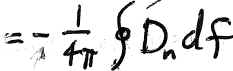 = - \frac{1}{4\pi} \oint D_n df